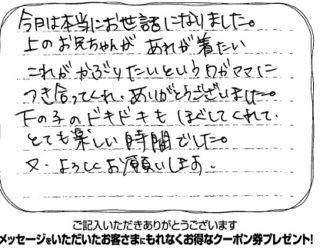 今日は本当にお世話になりました。
上のお兄ちゃんが あれが着たい
これがかぶりたいというワガママに
つき合ってくれ、ありがとうございました。
下の子のドキドキも ほぐしてくれて、
とても楽しい時間でした。
又、よろしくお願いします。
ご記入いただきありがとうございます
メッセージをいただいたお客さまにもれなくお得なクーポン券プレゼント!